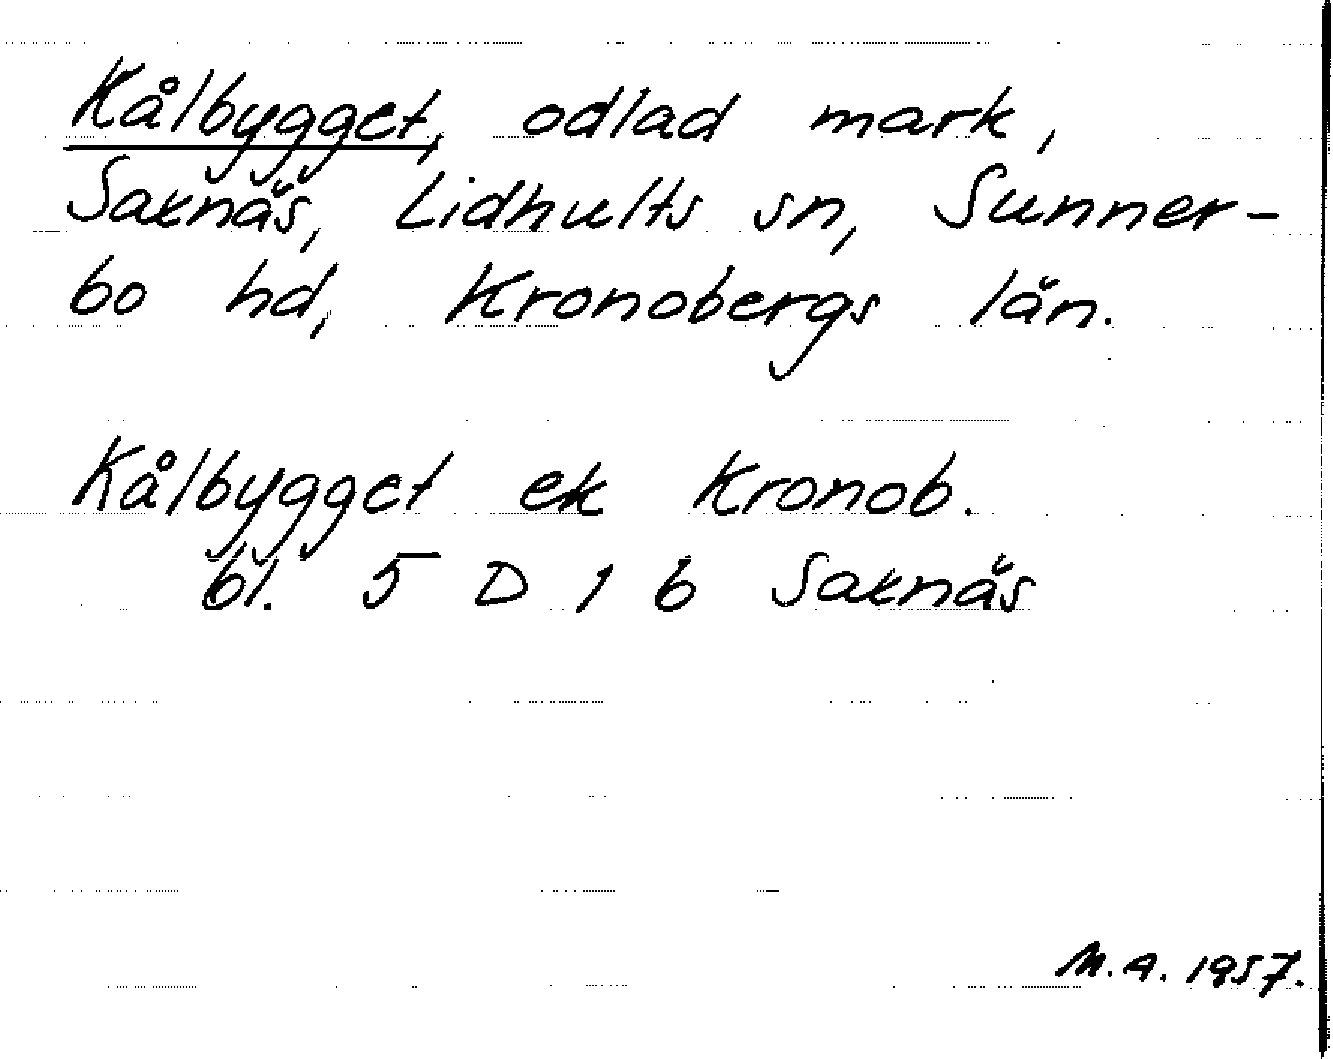 Kålbygget, odlad mark,
Saxnäs, Lidhults sn, Sunner-
bo hd, Kronobergs län.
Kålbygget ek Kronob.
bl. 5 D 1 b Saxnäs
M.A. 1957.